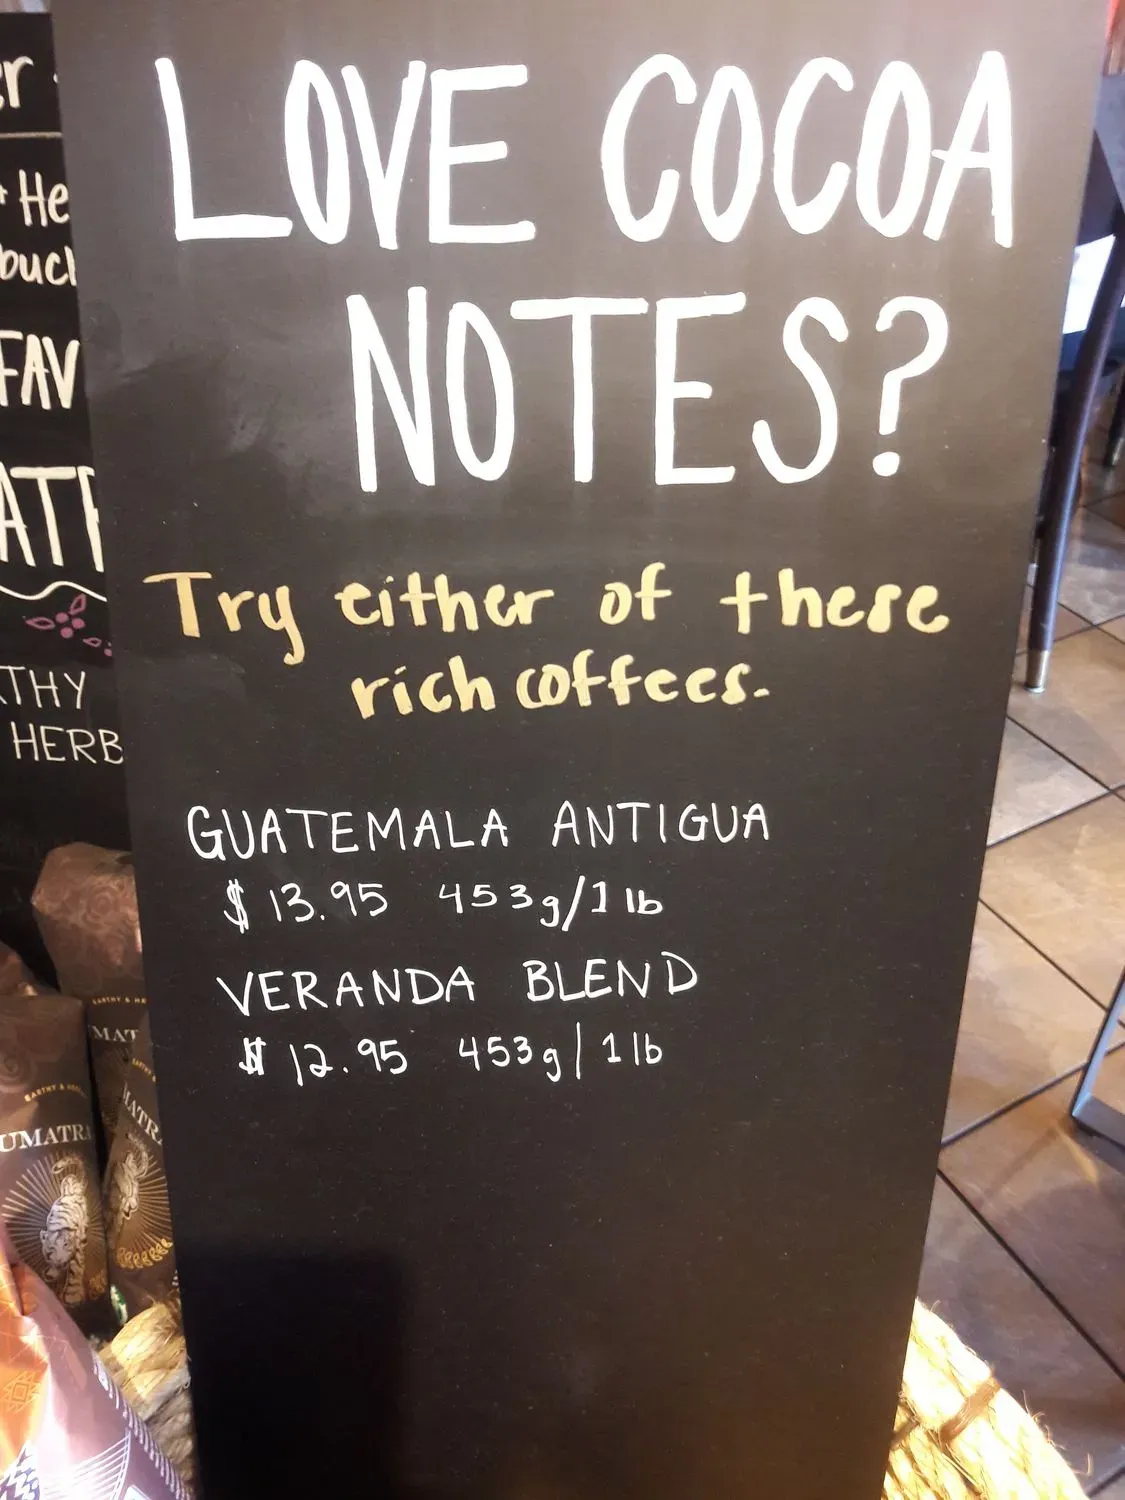 LOVE COCOA
NOTES?
Try either of these
rich coffees.
GUATEMALA ANTIGUA
$13.95 453g/1 lb
VERANDA BLEND
$12.95 453g/1 lb
er
He
buc
FAV
AT
THY
HERB
EARTHY &
UMAT
EARTHY &
UMATRA
ATR